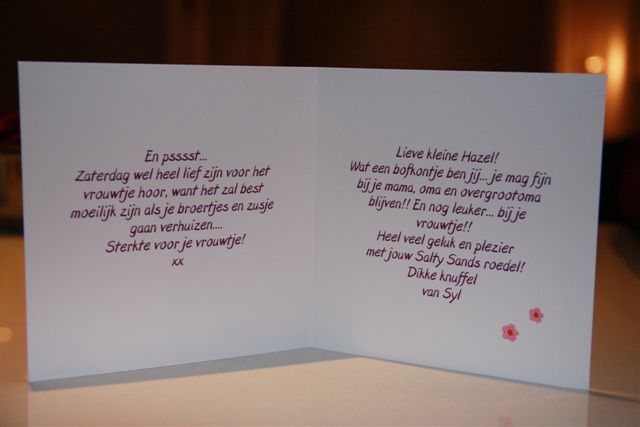 En psssst...
Zaterdag wel heel lief zijn voor het
vrouwtje hoor, want het zal best
moeilijk zijn als je broertjes en zusje
gaan verhuizen....
Sterkte voor je vrouwtje!
xx
Lieve kleine Hazel!
Wat een bofkontje ben jij... je mag fijn
bij je mama, oma en overgrootoma
blijven!! En nog leuker... bij je
vrouwtje!!
Heel veel geluk en plezier
met jouw Salty Sands roedel!
Dikke knuffel
van Syl